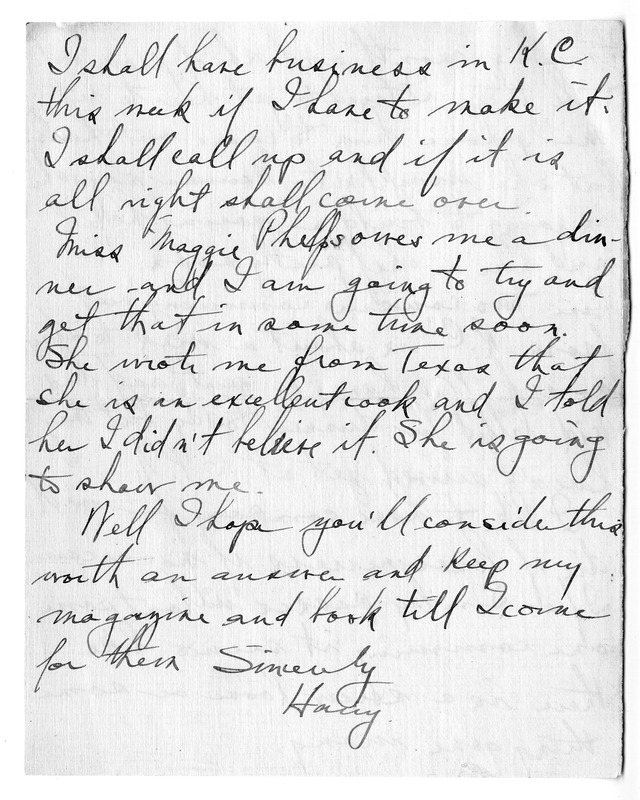 I shall have business in K.C.
this week if I have to make it.
I shall call up and if it is
all right shall come over.
Miss Maggie Phelps owes me a din-
ner and I am going to try and
get that in some time soon.
She wrote me from Texas that
she is an excellent cook and I told
her I didn't believe it. She is going
to show me.
Well I hope you'll consider this
worth an answer and keep my
magazine and book till I come
for them Sincerely
Harry